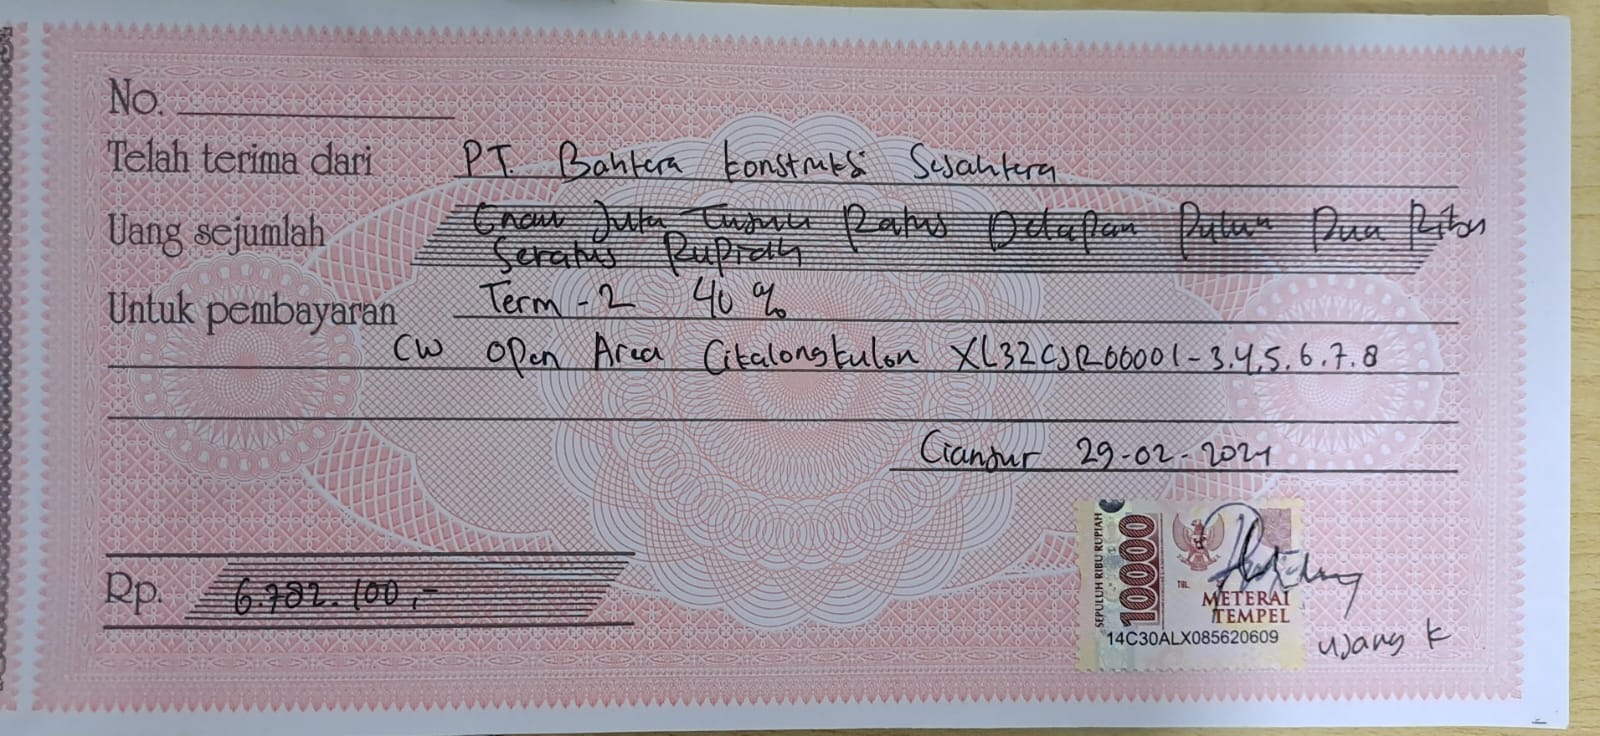 No.
Telah terima dari PT. Bahtera Konstruksi Sejahtera
Uang sejumlah Enam Juta Tujuh Ratus Delapan Puluh Dua Ribu
Seratus Rupiah
Untuk pembayaran Term - 2 40 %
CW Open Area Cikalongkulon XL32CJR00001 - 3.4.5.6.7.8
Cianjur 29-02-2024
Rp. 6.782.100,-
SEPULUH RIBU RUPIAH
10000
TGL.
METERAI
TEMPEL
14C30ALX085620609
Ujang K